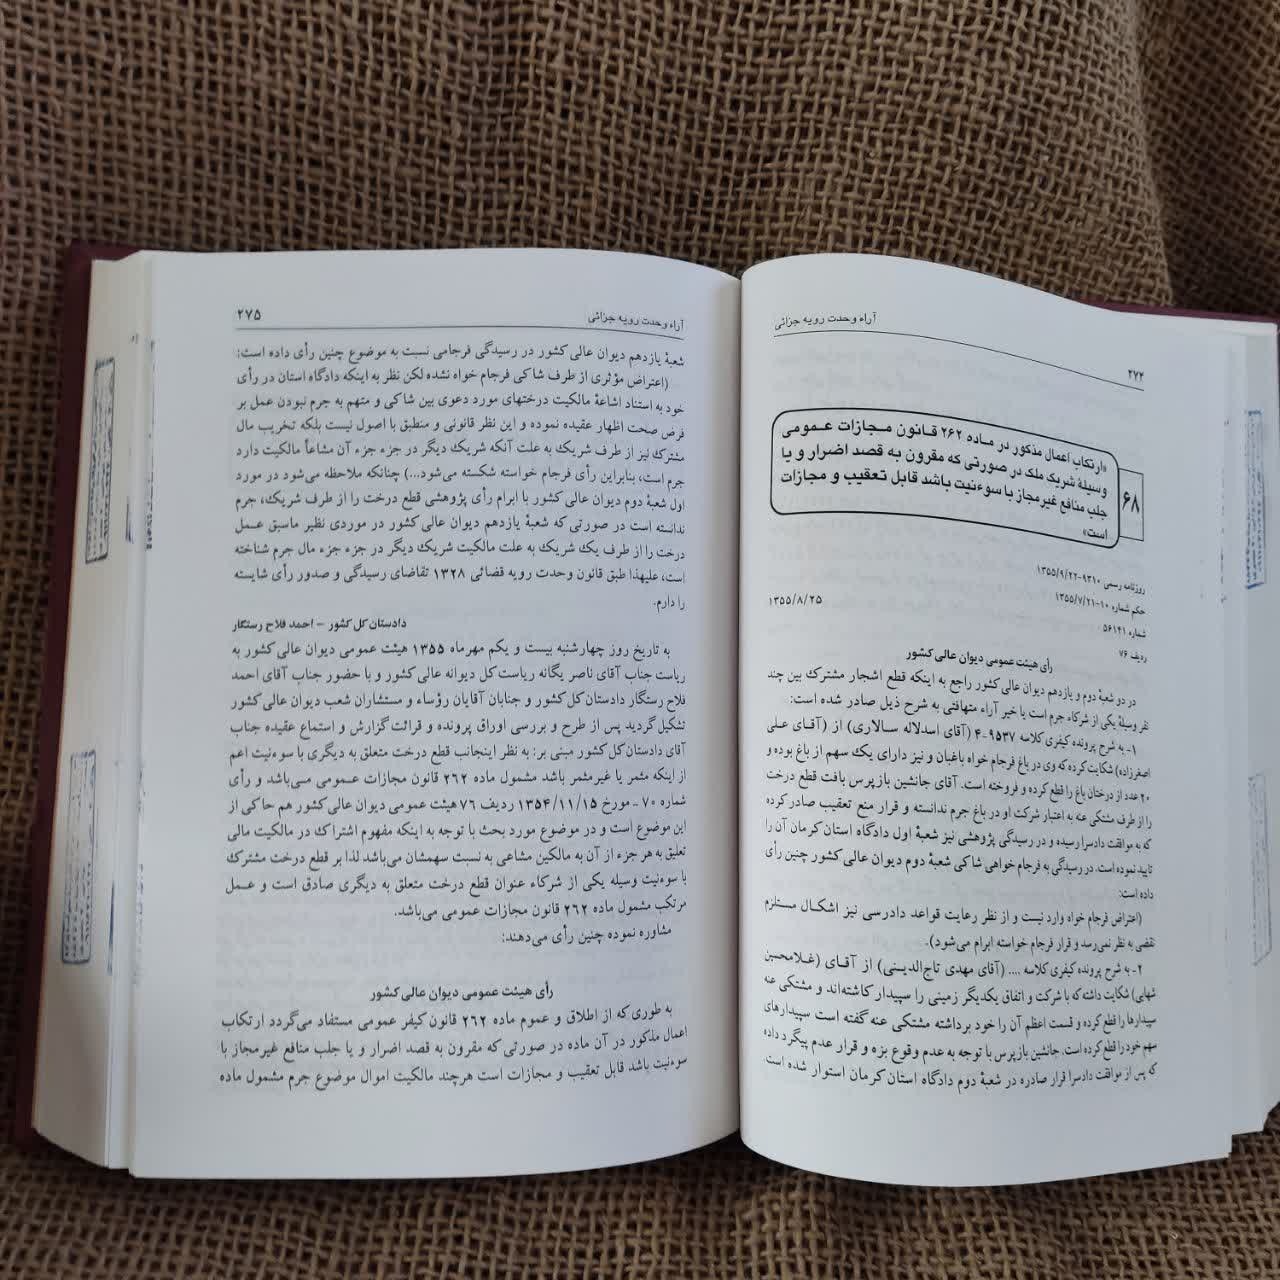 آراء وحدت رویه جزائی
۲۷۴
«ارتکاب اعمال مذکور در ماده ۲۶۲ قانون مجازات عمومی
وسیلهٔ شریک ملک در صورتی که مقرون به قصد اضرار و یا
جلب منافع غیرمجاز با سوءنیت باشد قابل تعقیب و مجازات
است»
۶۸
روزنامه رسمی ۹۳۱۰-۱۳۵۵/۹/۲۲
حکم شماره ۱۰-۱۳۵۵/۷/۲۱
شماره ۵۶۱۴۱
۱۳۵۵/۸/۲۵
ردیف ۷۶
رأی هیئت عمومی دیوان عالی کشور
در دو شعبهٔ دوم و یازدهم دیوان عالی کشور راجع به اینکه قطع اشجار مشترک بین چند
نفر وسیلهٔ یکی از شرکاء جرم است یا خیر آراء متهافتی به شرح ذیل صادر شده است:
۱- به شرح پرونده کیفری کلاسه ۹۵۳۷-۴ (آقای اسدلاله سالاری) از (آقای علی
اصغرزاده) شکایت کرده که وی در باغ فرجام خواه باغبان و نیز دارای یک سهم از باغ بوده و
۲۰ عدد از درختان باغ را قطع کرده و فروخته است. آقای جانشین بازپرس بافت قطع درخت
را از طرف مشتکی عنه به اعتبار شرکت او در باغ جرم ندانسته و قرار منع تعقیب صادر کرده
که به موافقت دادسرا رسیده و در رسیدگی پژوهشی نیز شعبهٔ اول دادگاه استان کرمان آن را
تایید نموده است. در رسیدگی به فرجام خواهی شاکی شعبهٔ دوم دیوان عالی کشور چنین رأی
داده است:
(اعتراض فرجام خواه وارد نیست و از نظر رعایت قواعد دادرسی نیز اشکال مستلزم
نقضی به نظر نمی‌رسد و قرار فرجام خواسته ابرام می‌شود).
۲- به شرح پرونده کیفری کلاسه .... (آقای مهدی تاج‌الدینی) از آقای (غلامحسین
شهابی) شکایت داشته که با شرکت و اتفاق یکدیگر زمینی را سپیدار کاشته‌اند و مشتکی عنه
سپیدارها را قطع کرده و قسمت اعظم آن را خود برداشته مشتکی عنه گفته است سپیدارهای
سهم خود را قطع کرده است. جانشین بازپرس با توجه به عدم وقوع بزه و قرار عدم پیگرد داده
که پس از موافقت دادسرا قرار صادره در شعبهٔ دوم دادگاه استان کرمان استوار شده است.
آراء وحدت رویه جزائی
۲۷۵
شعبهٔ یازدهم دیوان عالی کشور در رسیدگی فرجامی نسبت به موضوع چنین رأی داده است:
(اعتراض مؤثری از طرف شاکی فرجام خواه نشده لکن نظر به اینکه دادگاه استان در رأی
خود به استناد اشاعهٔ مالکیت درختهای مورد دعوی بین شاکی و متهم به جرم نبودن عمل بر
فرض صحت اظهار عقیده نموده و این نظر قانونی و منطبق با اصول نیست بلکه تخریب مال
مشترک نیز از طرف شریک به علت آنکه شریک دیگر در جزء جزء آن مشاعاً مالکیت دارد
جرم است، بنابراین رأی فرجام خواسته شکسته می‌شود...) چنانکه ملاحظه می‌شود در مورد
اول شعبهٔ دوم دیوان عالی کشور با ابرام رأی پژوهشی قطع درخت را از طرف شریک، جرم
ندانسته است در صورتی که شعبهٔ یازدهم دیوان عالی کشور در موردی نظیر ماسبق عمل
درخت را از طرف یک شریک به علت مالکیت شریک دیگر در جزء جزء مال جرم شناخته
است، علیهذا طبق قانون وحدت رویه قضائی ۱۳۲۸ تقاضای رسیدگی و صدور رأی شایسته
را دارم.
دادستان کل کشور - احمد فلاح رستگار
به تاریخ روز چهارشنبه بیست و یکم مهرماه ۱۳۵۵ هیئت عمومی دیوان عالی کشور به
ریاست جناب آقای ناصر یگانه ریاست کل دیوانه عالی کشور و با حضور جناب آقای احمد
فلاح رستگار دادستان کل کشور و جنابان آقایان رؤساء و مستشاران شعب دیوان عالی کشور
تشکیل گردید پس از طرح و بررسی اوراق پرونده و قرائت گزارش و استماع عقیده جناب
آقای دادستان کل کشور مبنی بر: به نظر اینجانب قطع درخت متعلق به دیگری با سوءنیت اعم
از اینکه مثمر یا غیرمثمر باشد مشمول ماده ۲۶۲ قانون مجازات عمومی می‌باشد و رأی
شماره ۷۰ - مورخ ۱۳۵۴/۱۱/۱۵ ردیف ۷۶ هیئت عمومی دیوان عالی کشور هم حاکی از
این موضوع است و در موضوع مورد بحث با توجه به اینکه مفهوم اشتراک در مالکیت مالی
تعلیق به هر جزء از آن به مالکین مشاعی به نسبت سهمشان می‌باشد لذا بر قطع درخت مشترک
با سوءنیت وسیله یکی از شرکاء عنوان قطع درخت متعلق به دیگری صادق است و عمل
مرتکب مشمول ماده ۲۶۲ قانون مجازات عمومی می‌باشد.
مشاوره نموده چنین رأی می‌دهند:
رأی هیئت عمومی دیوان عالی کشور
به طوری که از اطلاق و عموم ماده ۲۶۲ قانون کیفر عمومی مستفاد می‌گردد ارتکاب
اعمال مذکور در آن ماده در صورتی که مقرون به قصد اضرار و یا جلب منافع غیرمجاز با
سوءنیت باشد قابل تعقیب و مجازات است هرچند مالکیت اموال موضوع جرم مشمول ماده